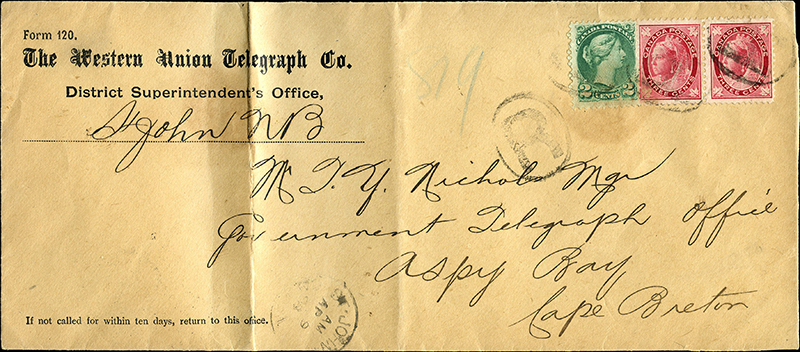 Form 120.
The Western Union Telegraph Co.
District Superintendent's Office,
St John NB
CANADA POSTAGE
2 CENTS 2
CANADA POSTAGE
THREE CENTS
CANADA POSTAGE
THREE CENTS
Mr T. Y. Nichol Mgr
Government Telegraph Office
Aspy Bay
Cape Breton
JOHN
AM
AP 9
If not called for within ten days, return to this office.